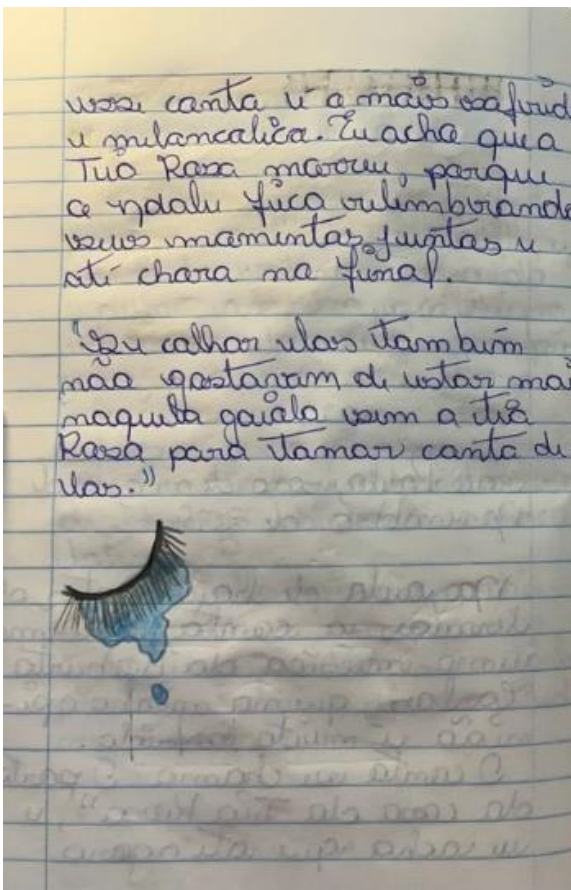 esse conto é o mais sofrid
e melancólico. Eu acho que a
Tia Rosa morreu, porque
o Ndalu fica relembrando
seus momentos juntos e
até chora no final.
"Se calhar elas também
não gostaram de estar mai
naquela gaiola sem a tia
Rosa para tomar conta de
las."